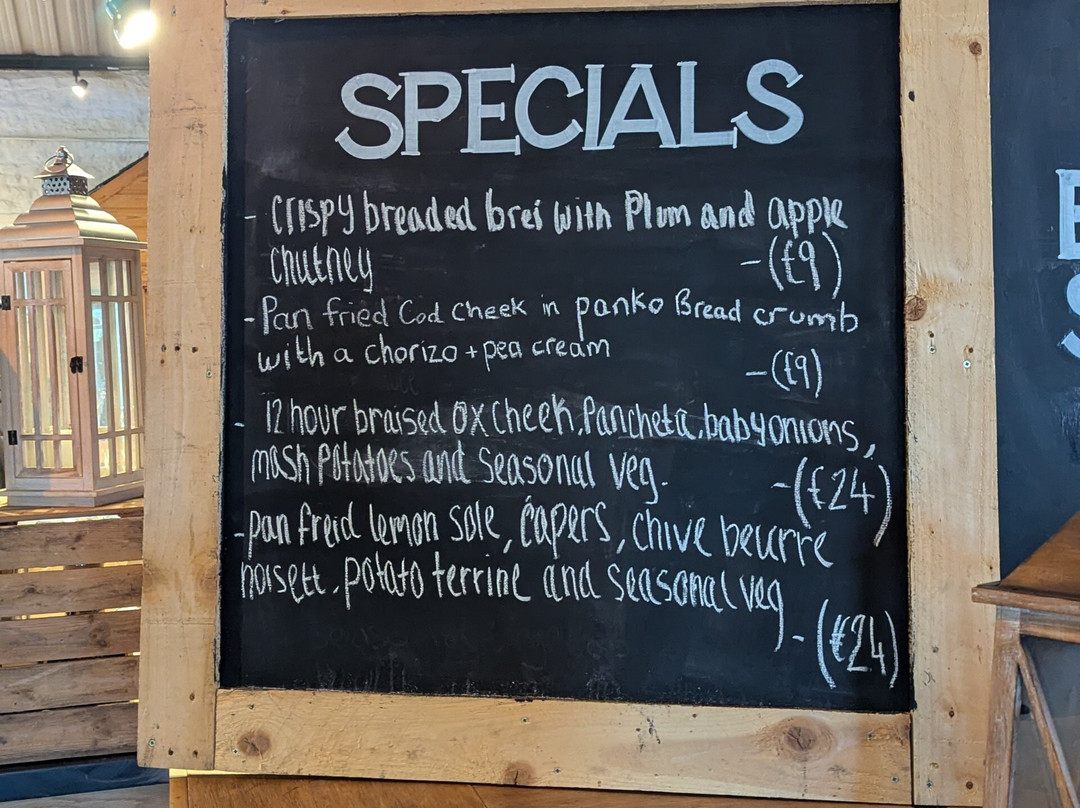 SPECIALS
- Crispy breaded brei with Plum and apple
chutney - (£9)
- Pan fried Cod Cheek in panko Bread crumb
with a chorizo + pea cream
- (£9)
- 12 hour braised Ox Cheek, Pancheta, baby onions,
mash Potatoes and seasonal veg.
- (£24)
- pan freid lemon sole, capers, chive beurre
noisett, potato terrine and seasonal veg
- (£24)